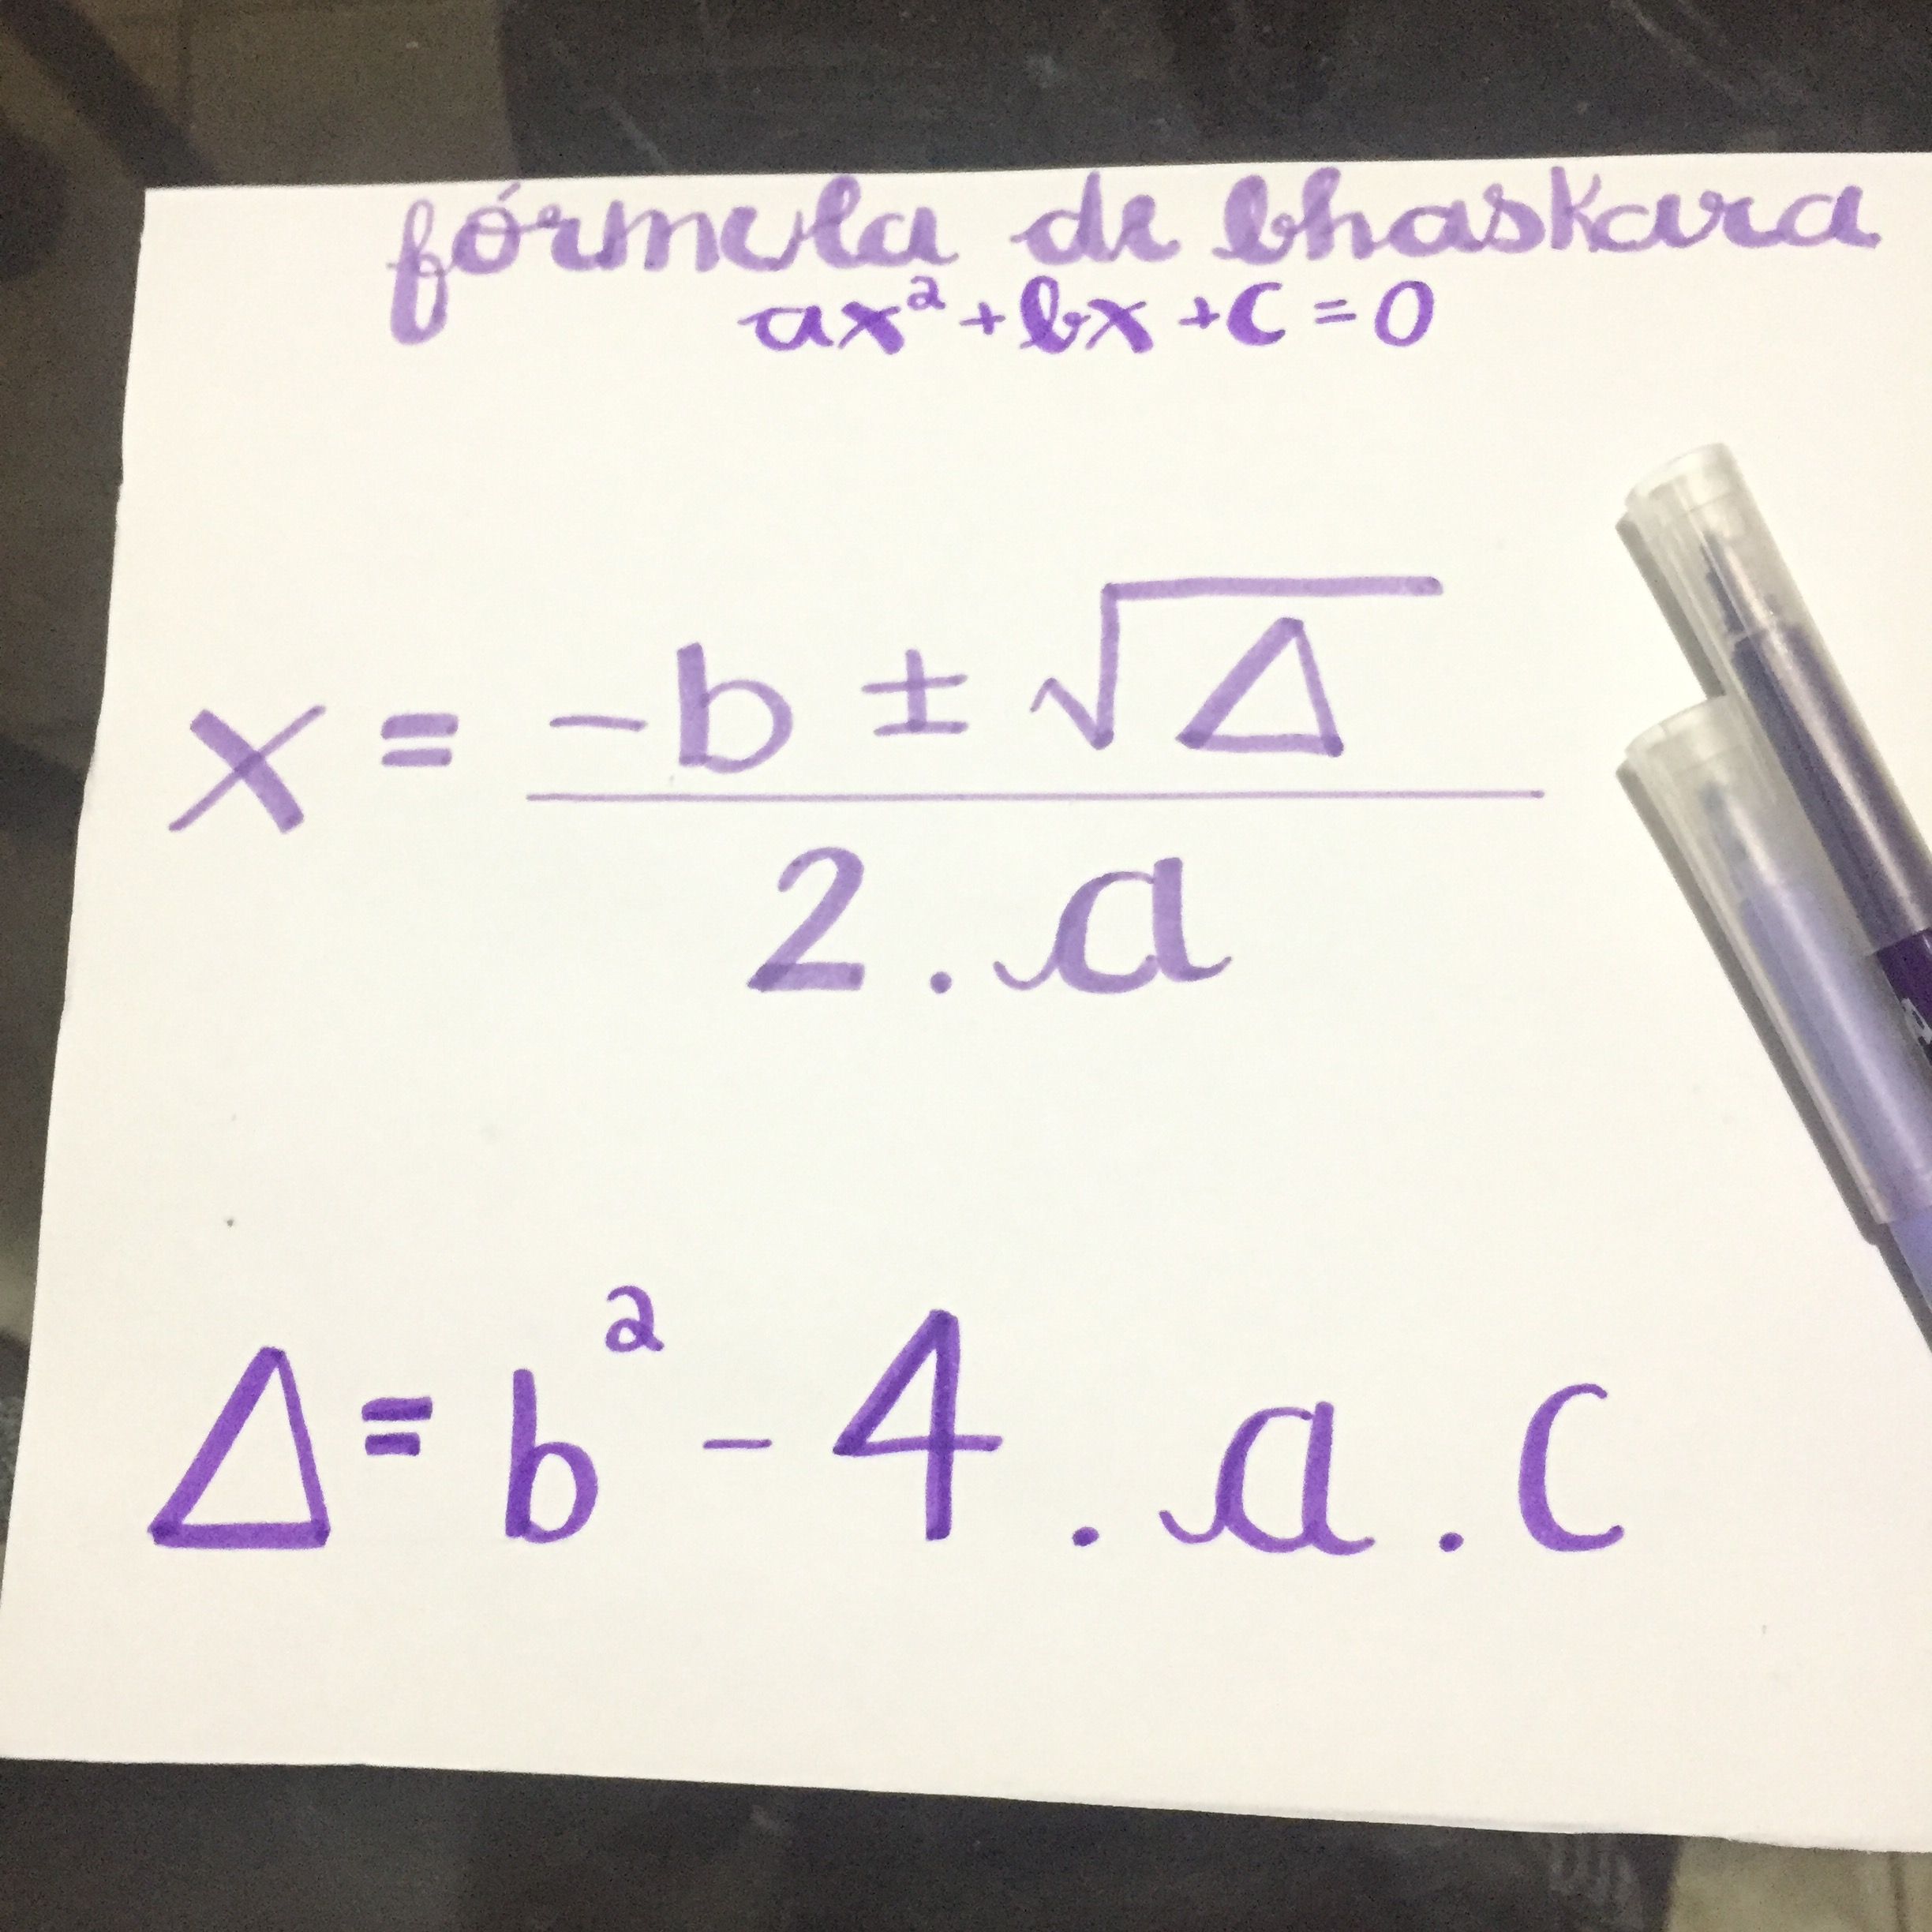 fórmula de bhaskara
ax² + bx + c = 0
x = -b ± √Δ
2 . a
Δ = b² - 4 . a . c